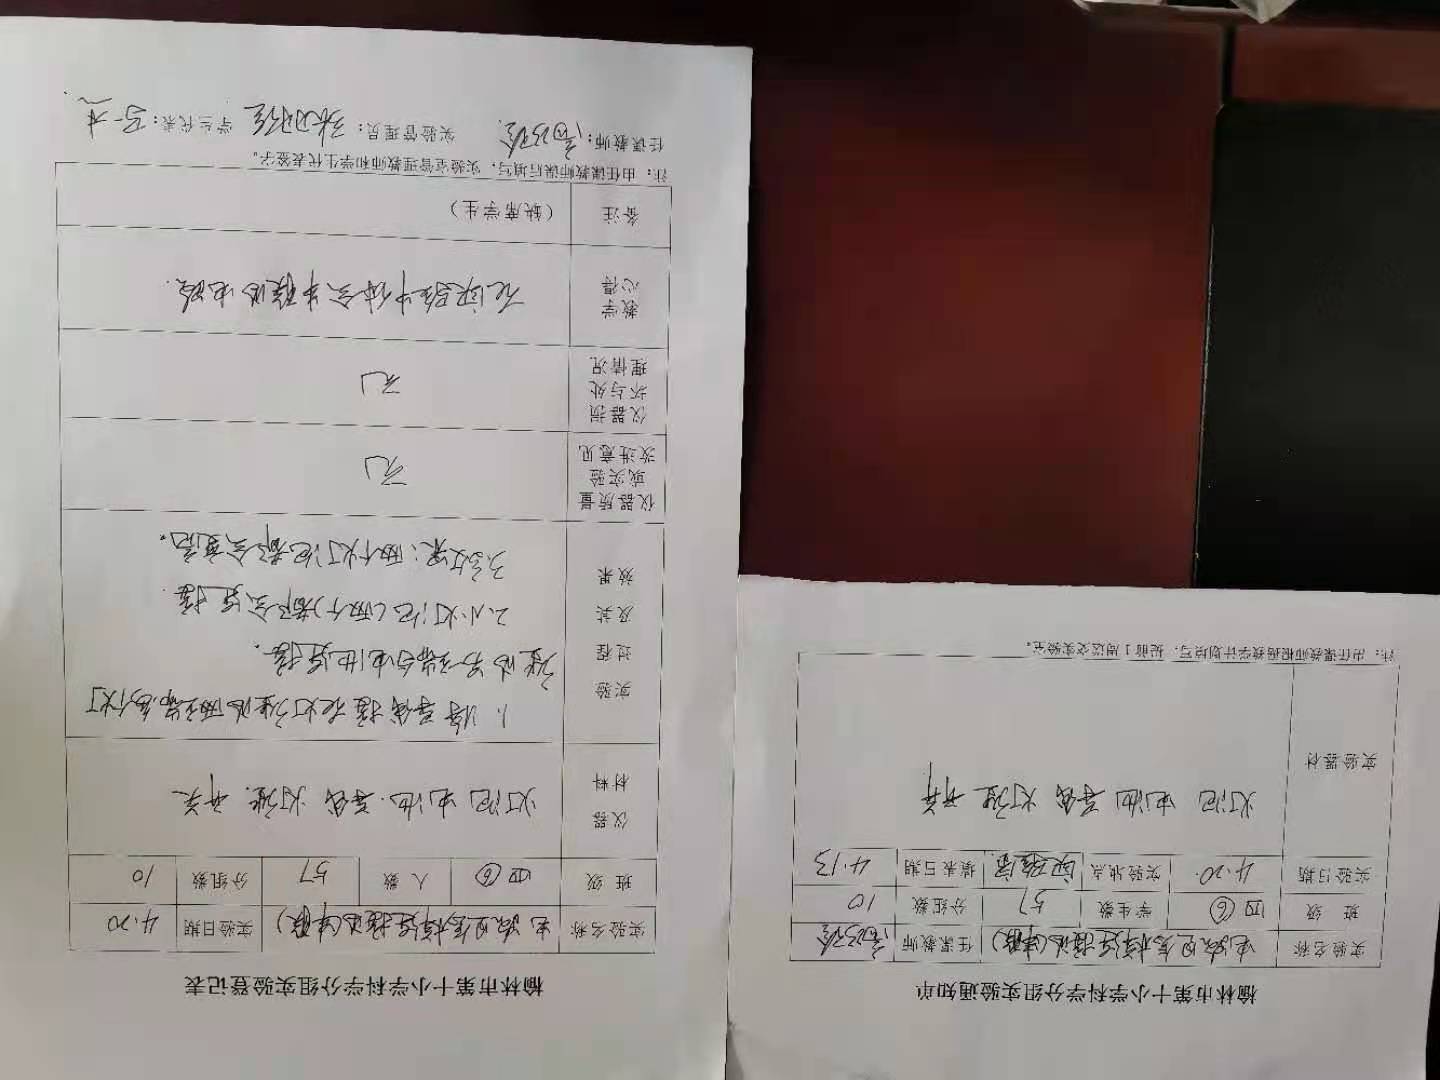 榆林市第十小学科学分组实验通知单
实验名称 电路是怎样连接的(串联) 任课教师
班 级 四⑥ 学生数 57 分组数 10
实验日期 4.20 实验地点 实验室 填表日期 4.13
实验器材 灯泡 电池 导线 灯座 开关
注：由任课教师根据教学计划填写，提前1周送交实验室。
榆林市第十小学科学分组实验登记表
实验名称 电路是怎样连接的(串联) 实验日期 4.20
班 级 四⑥ 人 数 57 分组数 10
仪器材料 灯泡 电池. 导线 灯座. 开关
实验过程及其效果
1. 将导线接在灯座的两端,各个灯
座的另一端与电池连接.
2.小灯泡(两个)都会连接.
3.效果:两个灯泡都会变亮。
仪器质量或实验改进意见 无
仪器损坏与处理情况 无
教学心得 在实验中体会串联的电路.
备注 (缺席学生)
注：由任课教师课后填写，实验室管理教师和学生代表签字。
任课教师： 实验管理员： 学生代表：